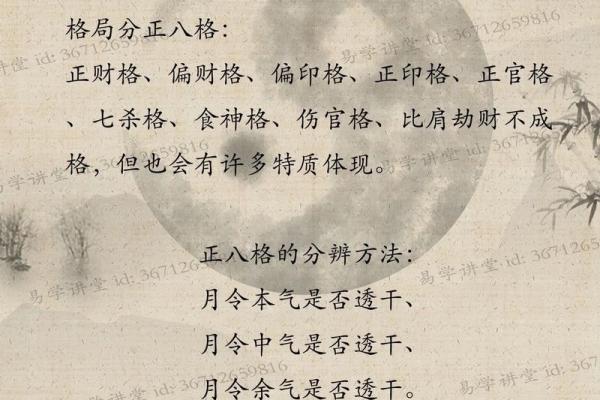 格局分正八格：
正财格、偏财格、偏印格、正印格、正官格
、七杀格、食神格、伤官格、比肩劫财不成
格，但也会有许多特质体现。
正八格的分辨方法：
月令本气是否透干、
月令中气是否透干、
月令余气是否透干。
易学讲堂 id: 36712659816
讲堂 id: 36712659816
易学讲堂 id: 36712659816
易学讲堂 id: 36712659816
易学讲堂 id: 36712659816
易学讲堂 id: 36712659816